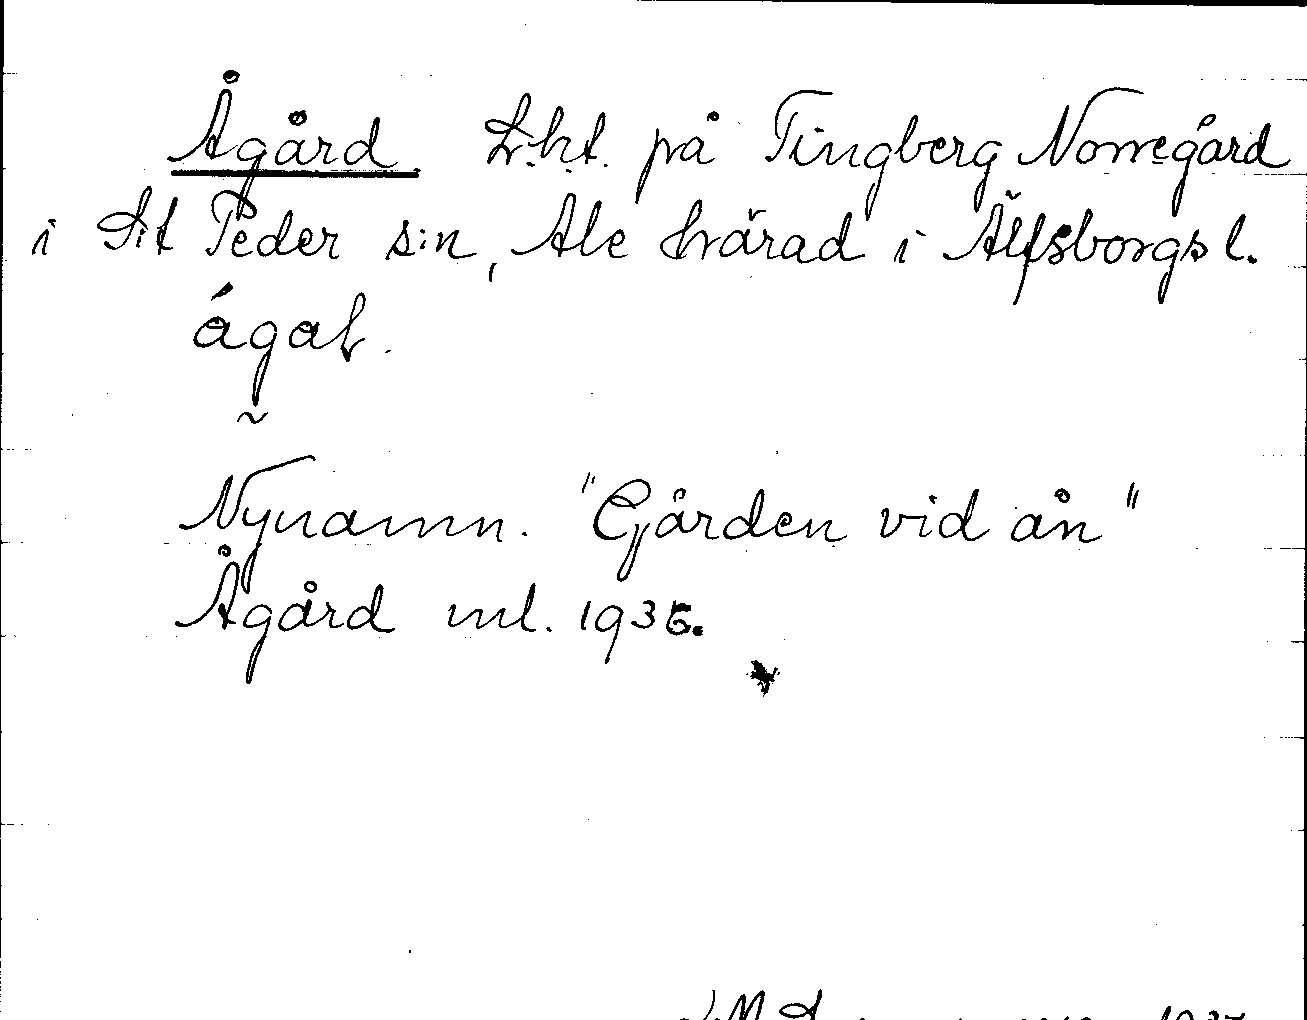 Ågård Lht. på Tingberg Norregård
i S:t Peder s:n, Ale härad i Älfsborgs l.
ágaɫ.
Nynamn. "Gården vid ån"
Ågård ml. 1935.
1937